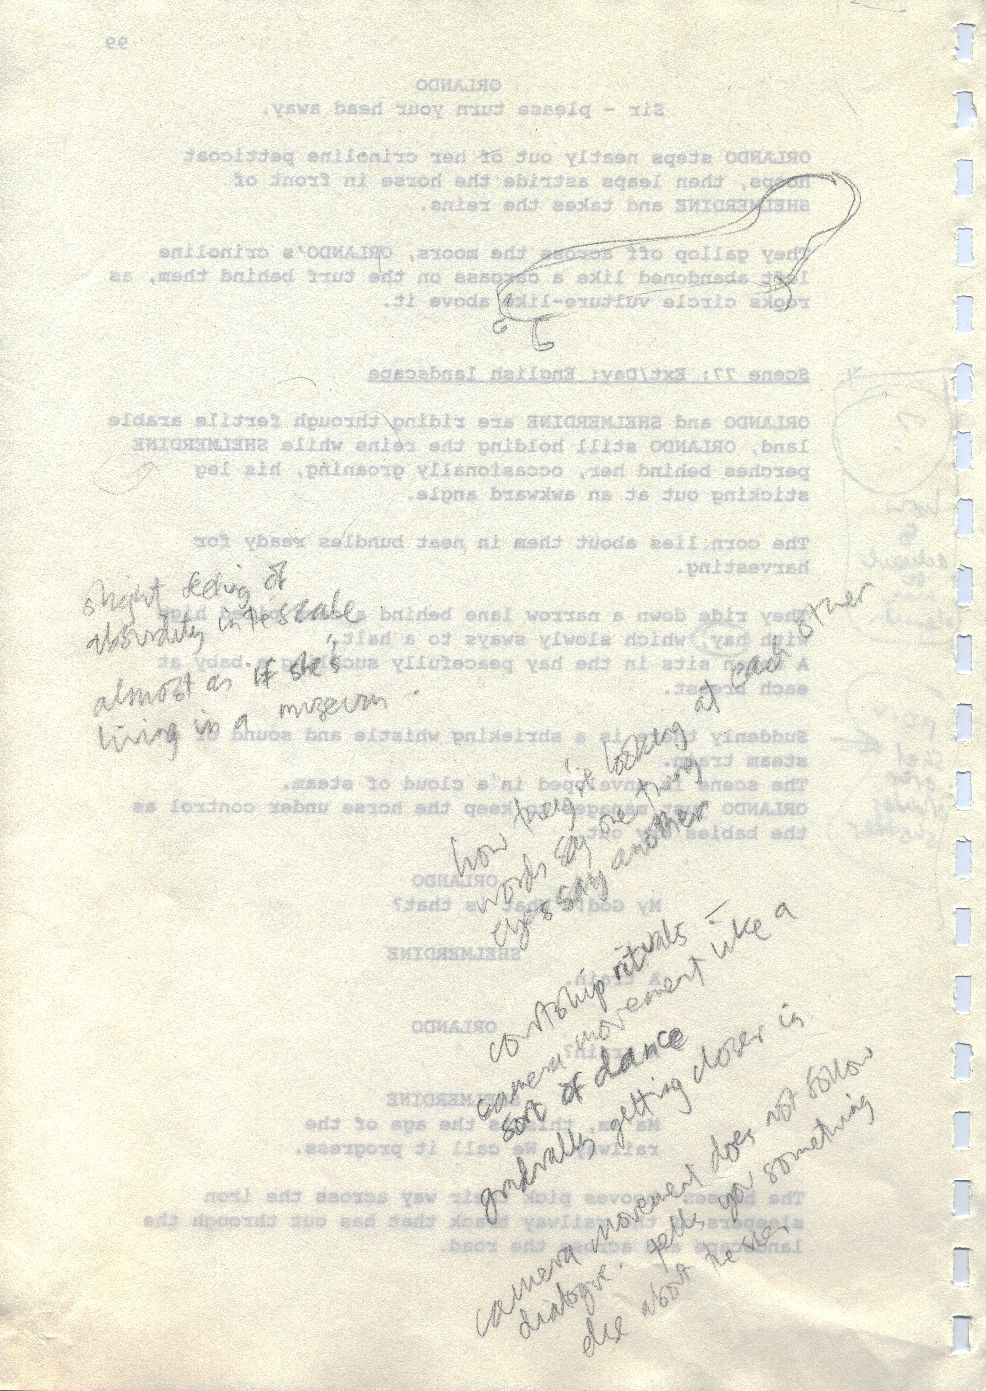 99
ORLANDO
Sir - please turn your head away.
ORLANDO steps neatly out of her crinoline petticoat
hoops, then leaps astride the horse in front of
SHELMERDINE and takes the reins.
They gallop off across the moors, ORLANDO's crinoline
left abandoned like a carcass on the turf behind them, as
rooks circle vulture-like above it.
Scene 77: Ext/Day: English landscape
ORLANDO and SHELMERDINE are riding through fertile arable
land, ORLANDO still holding the reins while SHELMERDINE
perches behind her, occasionally groaning, his leg
sticking out at an awkward angle.
The corn lies about them in neat bundles ready for
harvesting.
They ride down a narrow lane behind a cart piled high
with hay, which slowly sways to a halt.
A woman sits in the hay peacefully suckling a baby at
each breast.
Suddenly there is a shrieking whistle and sound of
steam train.
The scene is enveloped in a cloud of steam.
ORLANDO just manages to keep the horse under control as
the babies cry out.
ORLANDO
My God! What is that?
SHELMERDINE
A train.
ORLANDO
A train?
SHELMERDINE
Ma'am, this is the age of the
railway. We call it progress.
The horse's hooves pick their way across the iron
sleepers of the railway track that has cut through the
landscape and across the road.
slight feeling of
absurdity in the scale
almost as if she's
living in a museum.
how they're looking at each other
words say one thing
eyes say another
courtship rituals -
camera movement like a
sort of dance
gradually getting closer in
camera movement does not follow
dialogue. tells you something
else about he &her